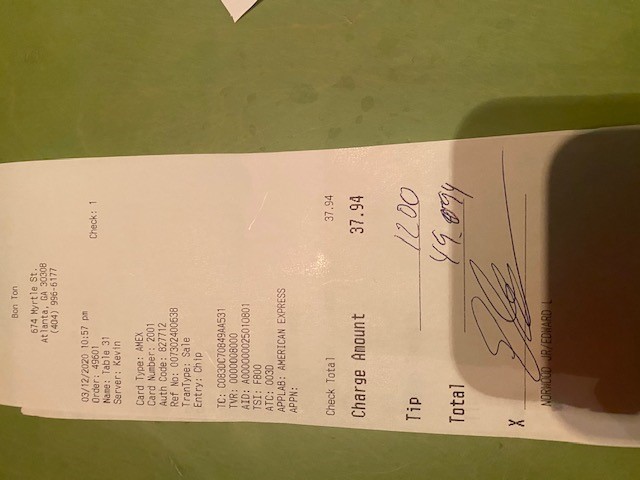 Bon Ton
674 Myrtle St.
Atlanta, GA 30308
(404) 996-6177
Check: 1
03/12/2020 10:57 pm
Order: 49601
Name: Table 31
Server: Kevin
Card Type: AMEX
Card Number: 2001
Auth Code: 827712
Ref No: 007302400638
TranType: Sale
Entry: Chip
TC: C083DC70849AA531
TVR: 0000008000
AID: A000000025010801
TSI: F800
ATC: 003D
APPLAB: AMERICAN EXPRESS
APPN:
Check Total 37.94
Charge Amount 37.94
Tip 12.00
Total 49.94
X
JR/EDWARD L